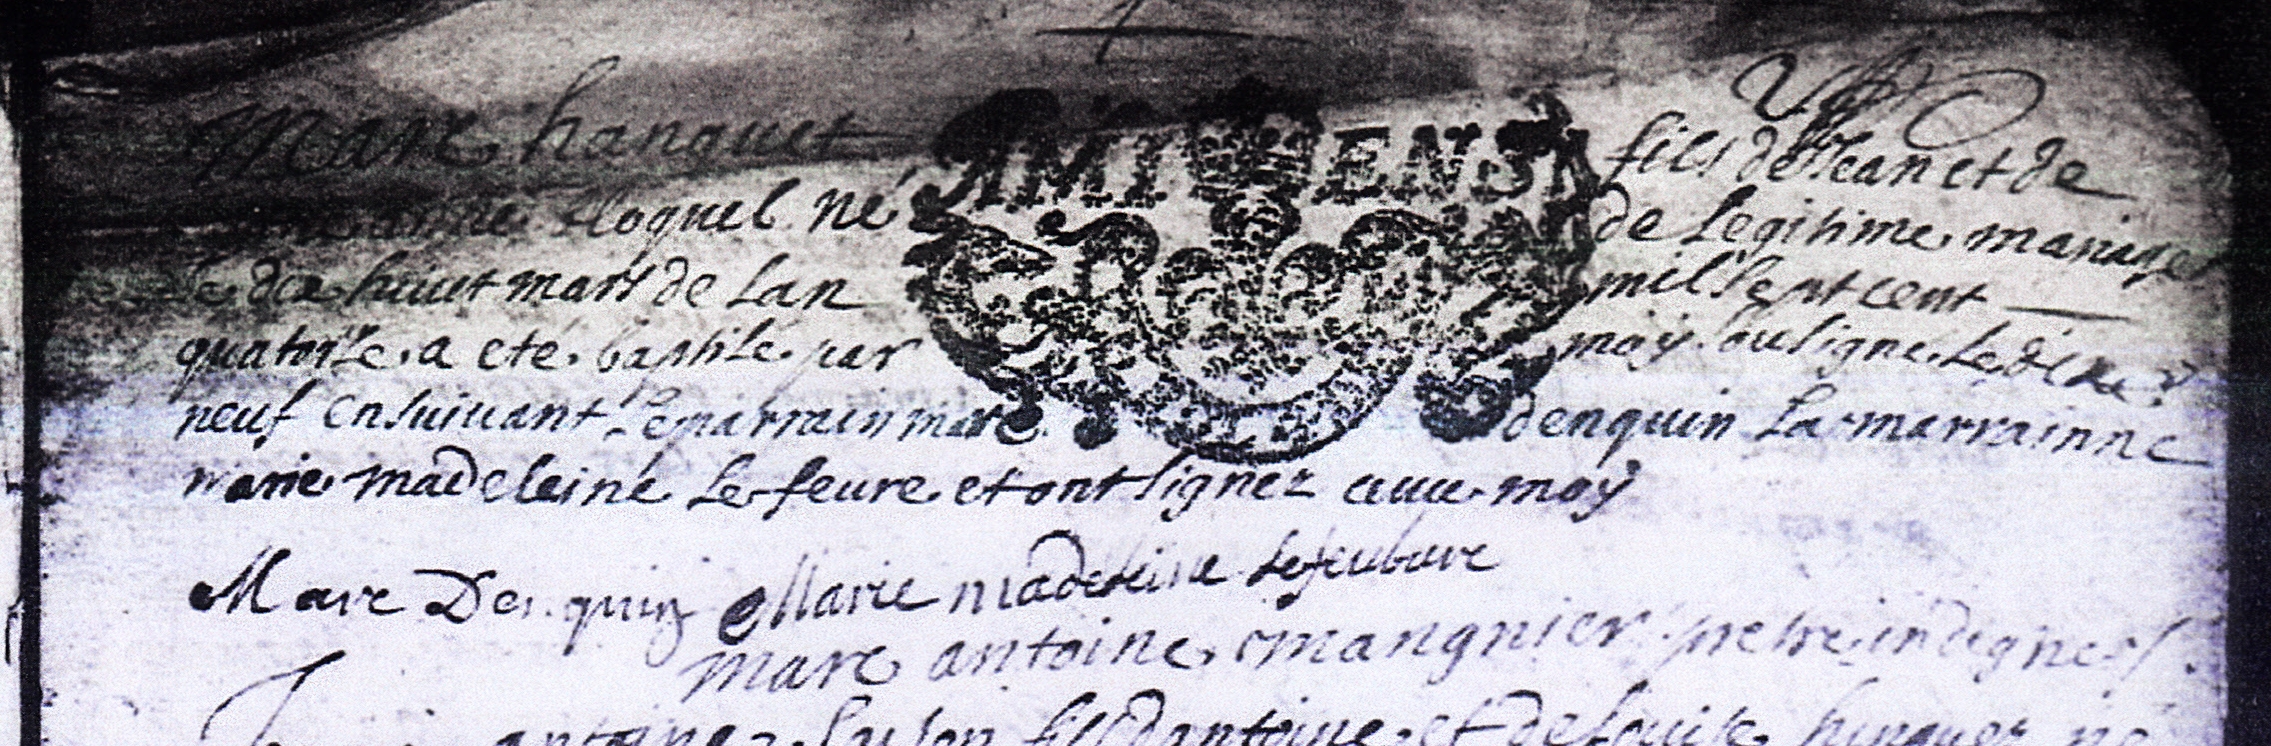 Marc hanquet AMIENS fils de Jean et de
anne Hoquel né de legitime mariage
le dix huict mars de lan mil sept cent
quatorse a eté baptisé par moy soussigne le dixe
neuf ensuivant le parrain marc denquin la marrainne
marie madeleine le feure et ont signez avec moy
Marc Denquin Marie madeleine Lefeubure
marc antoine mangnier pretre indigne
antoine fils dantoine et de louise